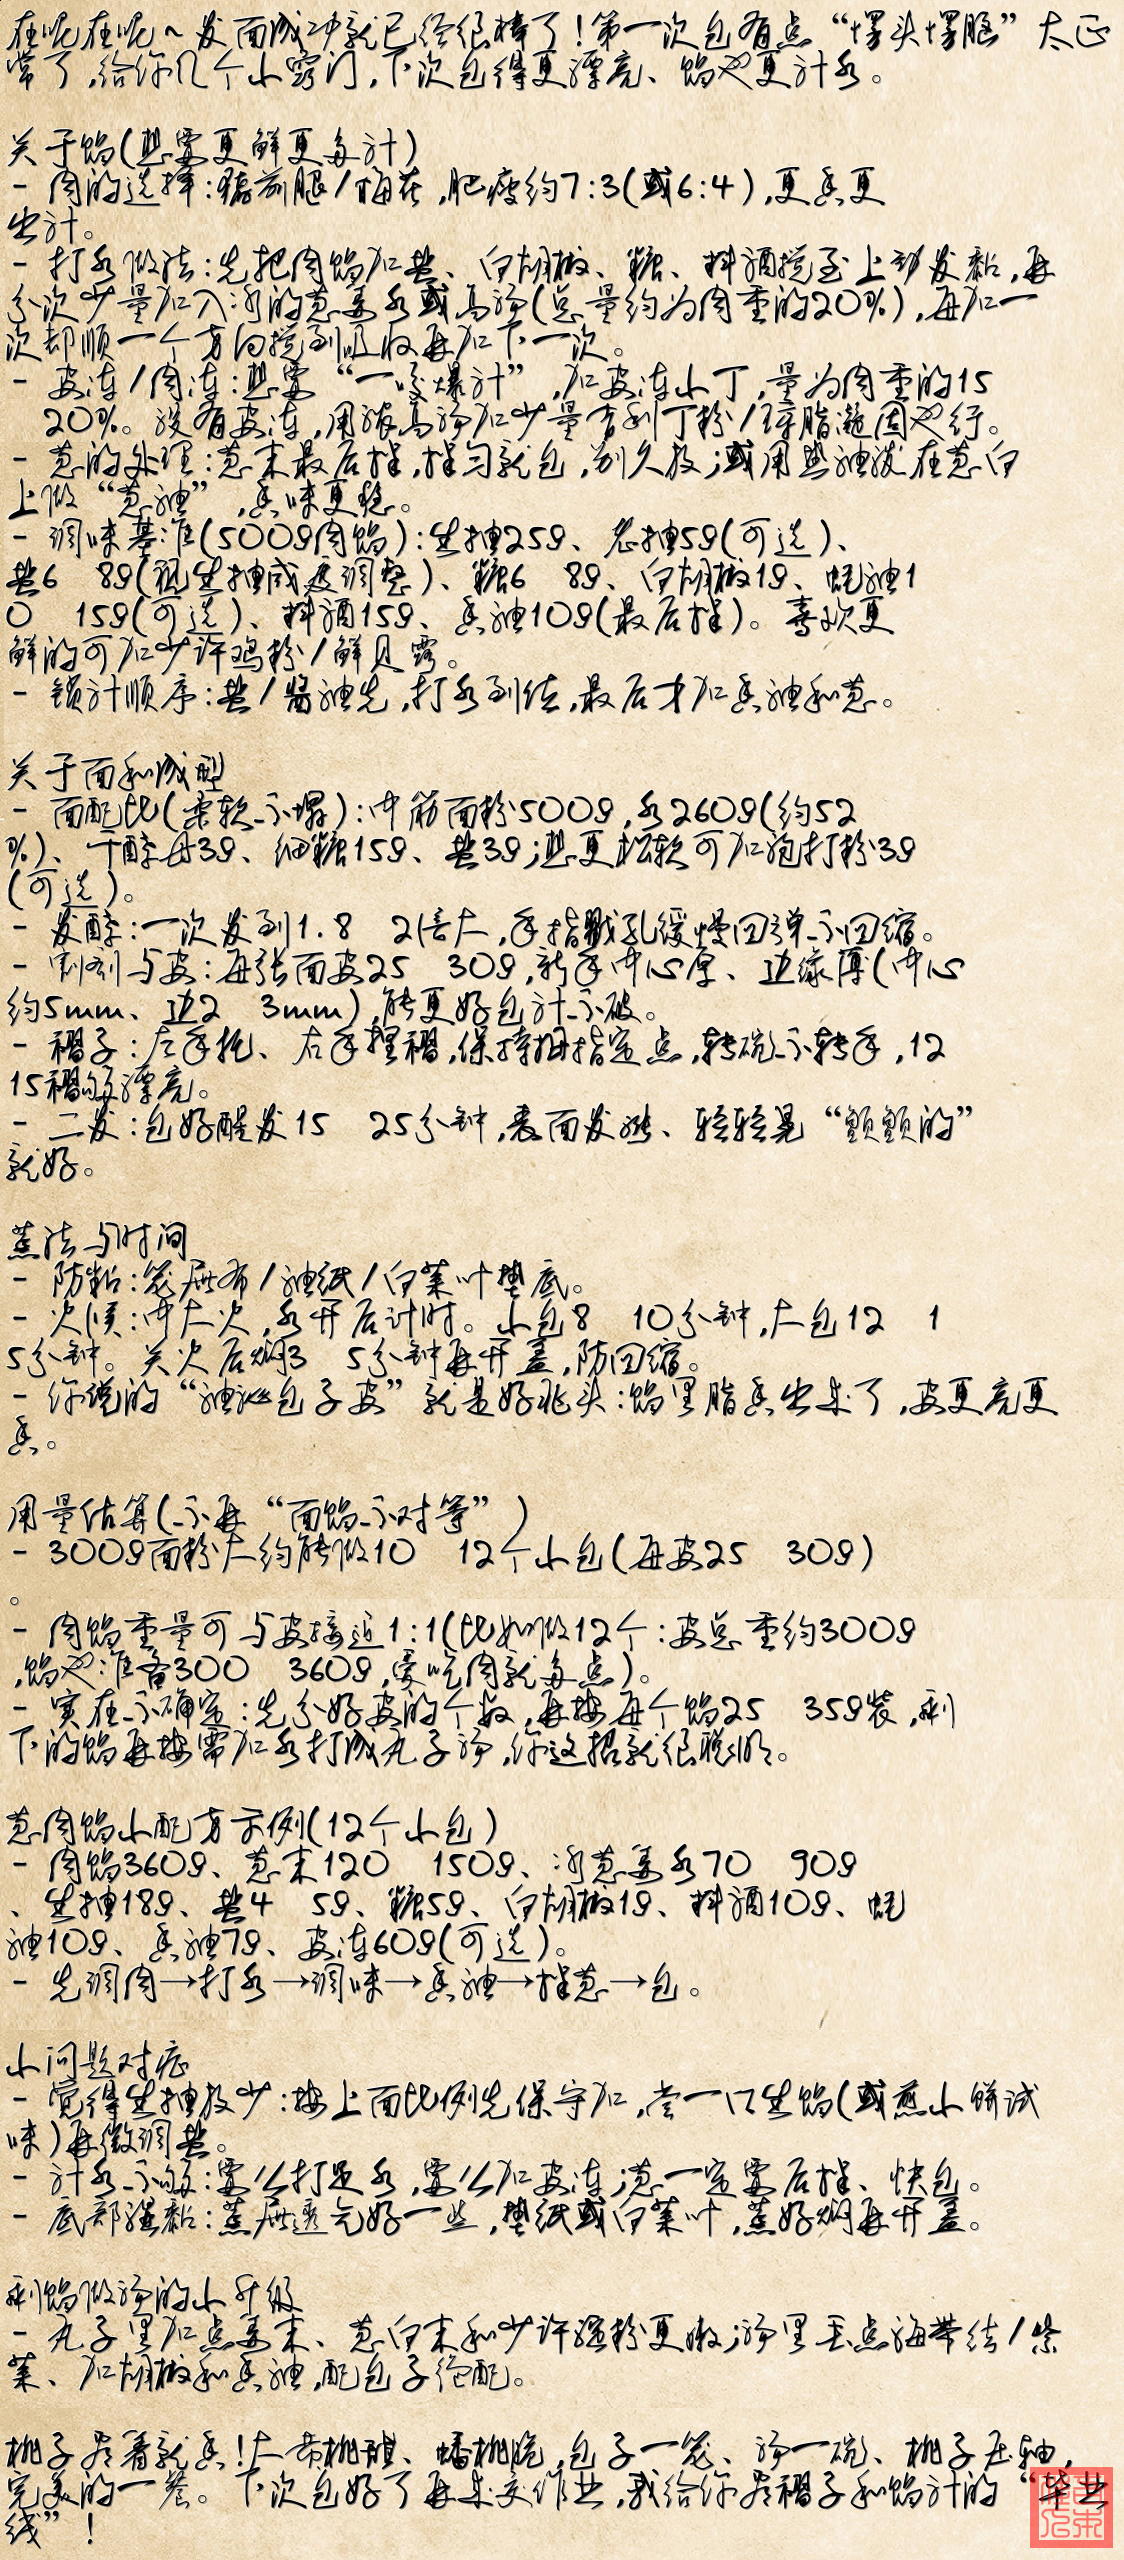 在呢在呢~发面成功就已经很棒了!第一次包有点“塌头塌脑”太正
常了,给你几个小窍门,下次包得更漂亮、馅也更汁水。
关于馅(想要更鲜更多汁)
- 肉的选择:猪前腿/梅花,肥瘦约7:3(或6:4),更香更
出汁。
- 打水做法:先把肉馅加盐、白胡椒、糖、料酒搅至上劲发黏,再
分次少量加入冰的葱姜水或高汤(总量约为肉重的20%),每加一
次都顺一个方向搅到吸收再加下一次。
- 皮冻/肉冻:想要“一咬爆汁”,加皮冻小丁,量为肉重的15
20%。没有皮冻,用浓高汤加少量吉利丁粉/琼脂凝固也行。
- 葱的处理:葱末最后拌,拌匀就包,别久放;或用热油泼在葱白
上做“葱油”,香味更稳。
- 调味基准(500g肉馅):生抽25g、老抽5g(可选)、
盐6 8g(视生抽咸度调整)、糖6 8g、白胡椒1g、蚝油1
0 15g(可选)、料酒15g、香油10g(最后拌)。喜欢更
鲜的可加少许鸡粉/鲜贝露。
- 锁汁顺序:盐/酱油先,打水到位,最后才加香油和葱。
关于面和成型
- 面配比(柔软不塌):中筋面粉500g,水260g(约52
%)、干酵母3g、细糖15g、盐3g;想更松软可加泡打粉3g
(可选)。
- 发酵:一次发到1.8 2倍大,手指戳孔缓慢回弹不回缩。
- 割剂与皮:每张面皮25 30g,新手中心厚、边缘薄(中心
约5mm、边2 3mm),能更好包汁不破。
- 褶子:左手托、右手捏褶,保持拇指定点,转碗不转手,12
15褶够漂亮。
- 二发:包好醒发15 25分钟,表面发胀、轻轻晃“颤颤的”
就好。
蒸法与时间
- 防粘:笼屉布/油纸/白菜叶垫底。
- 火候:中大火,水开后计时。小包8 10分钟,大包12 1
5分钟。关火后焖3 5分钟再开盖,防回缩。
- 你说的“油泚包子皮”就是好兆头:馅里脂香出来了,皮更亮更
香。
用量估算(不再“面馅不对等”)
- 300g面粉大约能做10 12个小包(每皮25 30g)
。
- 肉馅重量可与皮接近1:1(比如做12个:皮总重约300g
,馅也准备300 360g,爱吃肉就多点)。
- 实在不确定:先分好皮的个数,再按每个馅25 35g装,剩
下的馅再按需加水打成丸子汤,你这招就很聪明。
葱肉馅小配方示例(12个小包)
- 肉馅360g、葱末120 150g、冰葱姜水70 90g
、生抽18g、盐4 5g、糖5g、白胡椒1g、料酒10g、蚝
油10g、香油7g、皮冻60g(可选)。
- 先调肉→打水→调味→香油→拌葱→包。
小问题对症
- 觉得生抽放少:按上面比例先保守加,尝一口生馅(或煎小饼试
味)再微调盐。
- 汁水不够:要么打足水,要么加皮冻;葱一定要后拌、快包。
- 底部湿黏:蒸屉透气好一些,垫纸或白菜叶,蒸好焖再开盖。
剩馅做汤的小升级
- 丸子里加点姜末、葱白末和少许淀粉更嫩;汤里丢点海带结/紫
菜、加胡椒和香油,配包子绝配。
桃子看着就香!大带桃甜、蟠桃脆,包子一笼、汤一碗、桃子压轴,
完美的一餐。下次包好了再来交作业,我给你看褶子和馅汁的“毕业
线”!